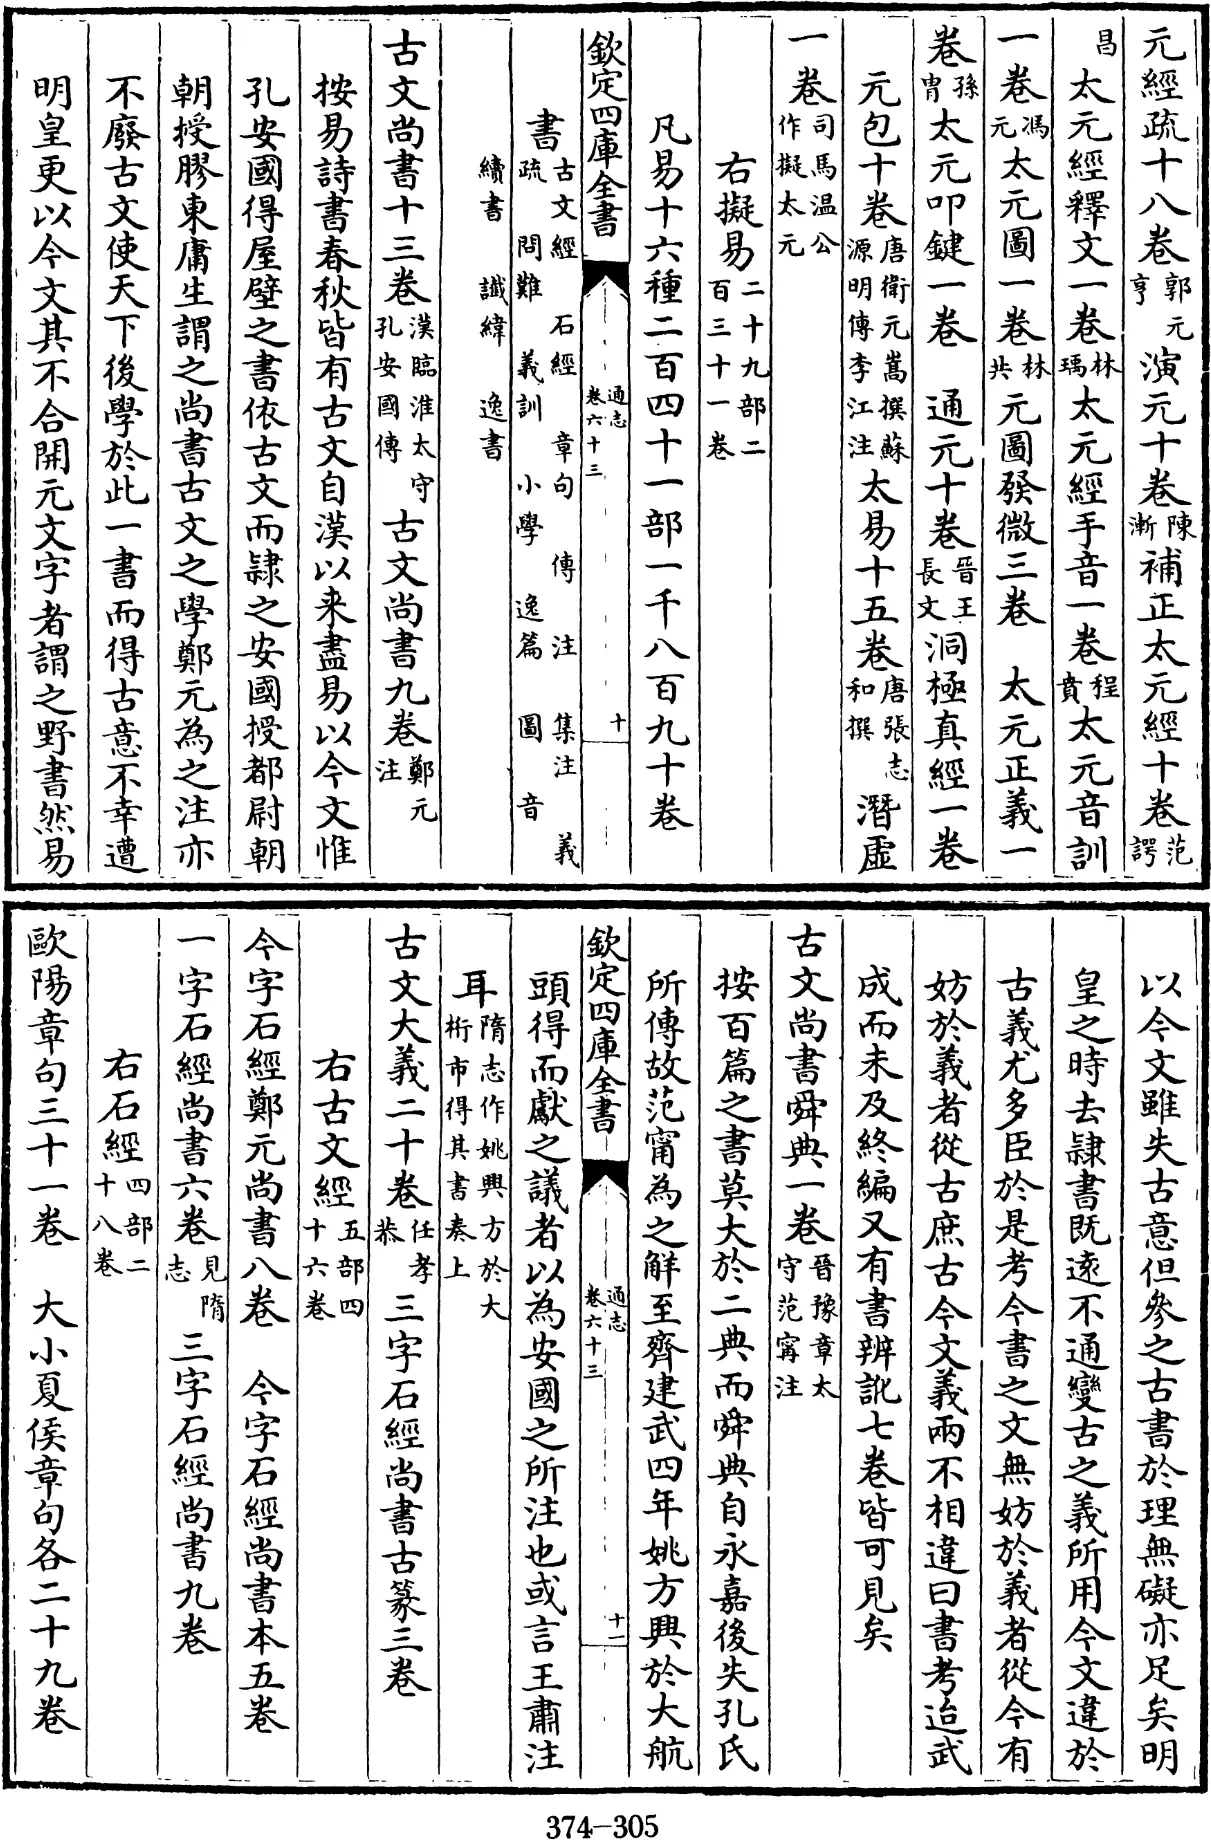 元經疏十八卷郭元亨演元十卷陳漸補正太元經十卷范諤
昌太元經釋文一卷林瑀太元經手音一卷程賁太元音訓
一卷馮元太元圖一卷林共元圖發微三卷太元正義一
卷孫胄太元叩鍵一卷通元十卷晉王長文洞極真經一卷
元包十卷唐衛元嵩撰蘇源明傳李江注太易十五卷唐張志和撰潛虛
一卷司馬温公作擬太元
右擬易二十九部二百三十一卷
凡易十六種二百四十一部一千八百九十卷
欽定四庫全書 通志卷六十三 十
書古文經 石經 章句 傳 注 集注 義疏 問難 義訓 小學 逸篇 圖 音
續書 讖緯 逸書
古文尚書十三卷漢臨淮太守孔安國傳古文尚書九卷鄭元注
按易詩書春秋皆有古文自漢以来盡易以今文惟
孔安國得屋壁之書依古文而隷之安國授都尉朝
朝授膠東庸生謂之尚書古文之學鄭元為之注亦
不廢古文使天下後學於此一書而得古意不幸遭
明皇更以今文其不合開元文字者謂之野書然易
以今文雖失古意但參之古書於理無礙亦足矣明
皇之時去隷書既逺不通變古之義所用今文違於
古義尤多臣於是考今書之文無妨於義者從今有
妨於義者從古庶古今文義兩不相違曰書考迨武
成而未及終編又有書辨訛七卷皆可見矣
古文尚書舜典一卷晉豫章太守范甯注
按百篇之書莫大於二典而舜典自永嘉後失孔氏
所傳故范甯為之解至齊建武四年姚方興於大航
欽定四庫全書 通志卷六十三 十一
頭得而獻之議者以為安國之所注也或言王肅注
耳隋志作姚興方於大桁市得其書奏上
古文大義二十卷任孝恭三字石經尚書古篆三卷
右古文經五部四十六卷
今字石經鄭元尚書八卷今字石經尚書本五卷
一字石經尚書六卷見隋志三字石經尚書九卷
右石經四部二十八卷
歐陽章句三十一卷大小夏侯章句各二十九卷
374-305